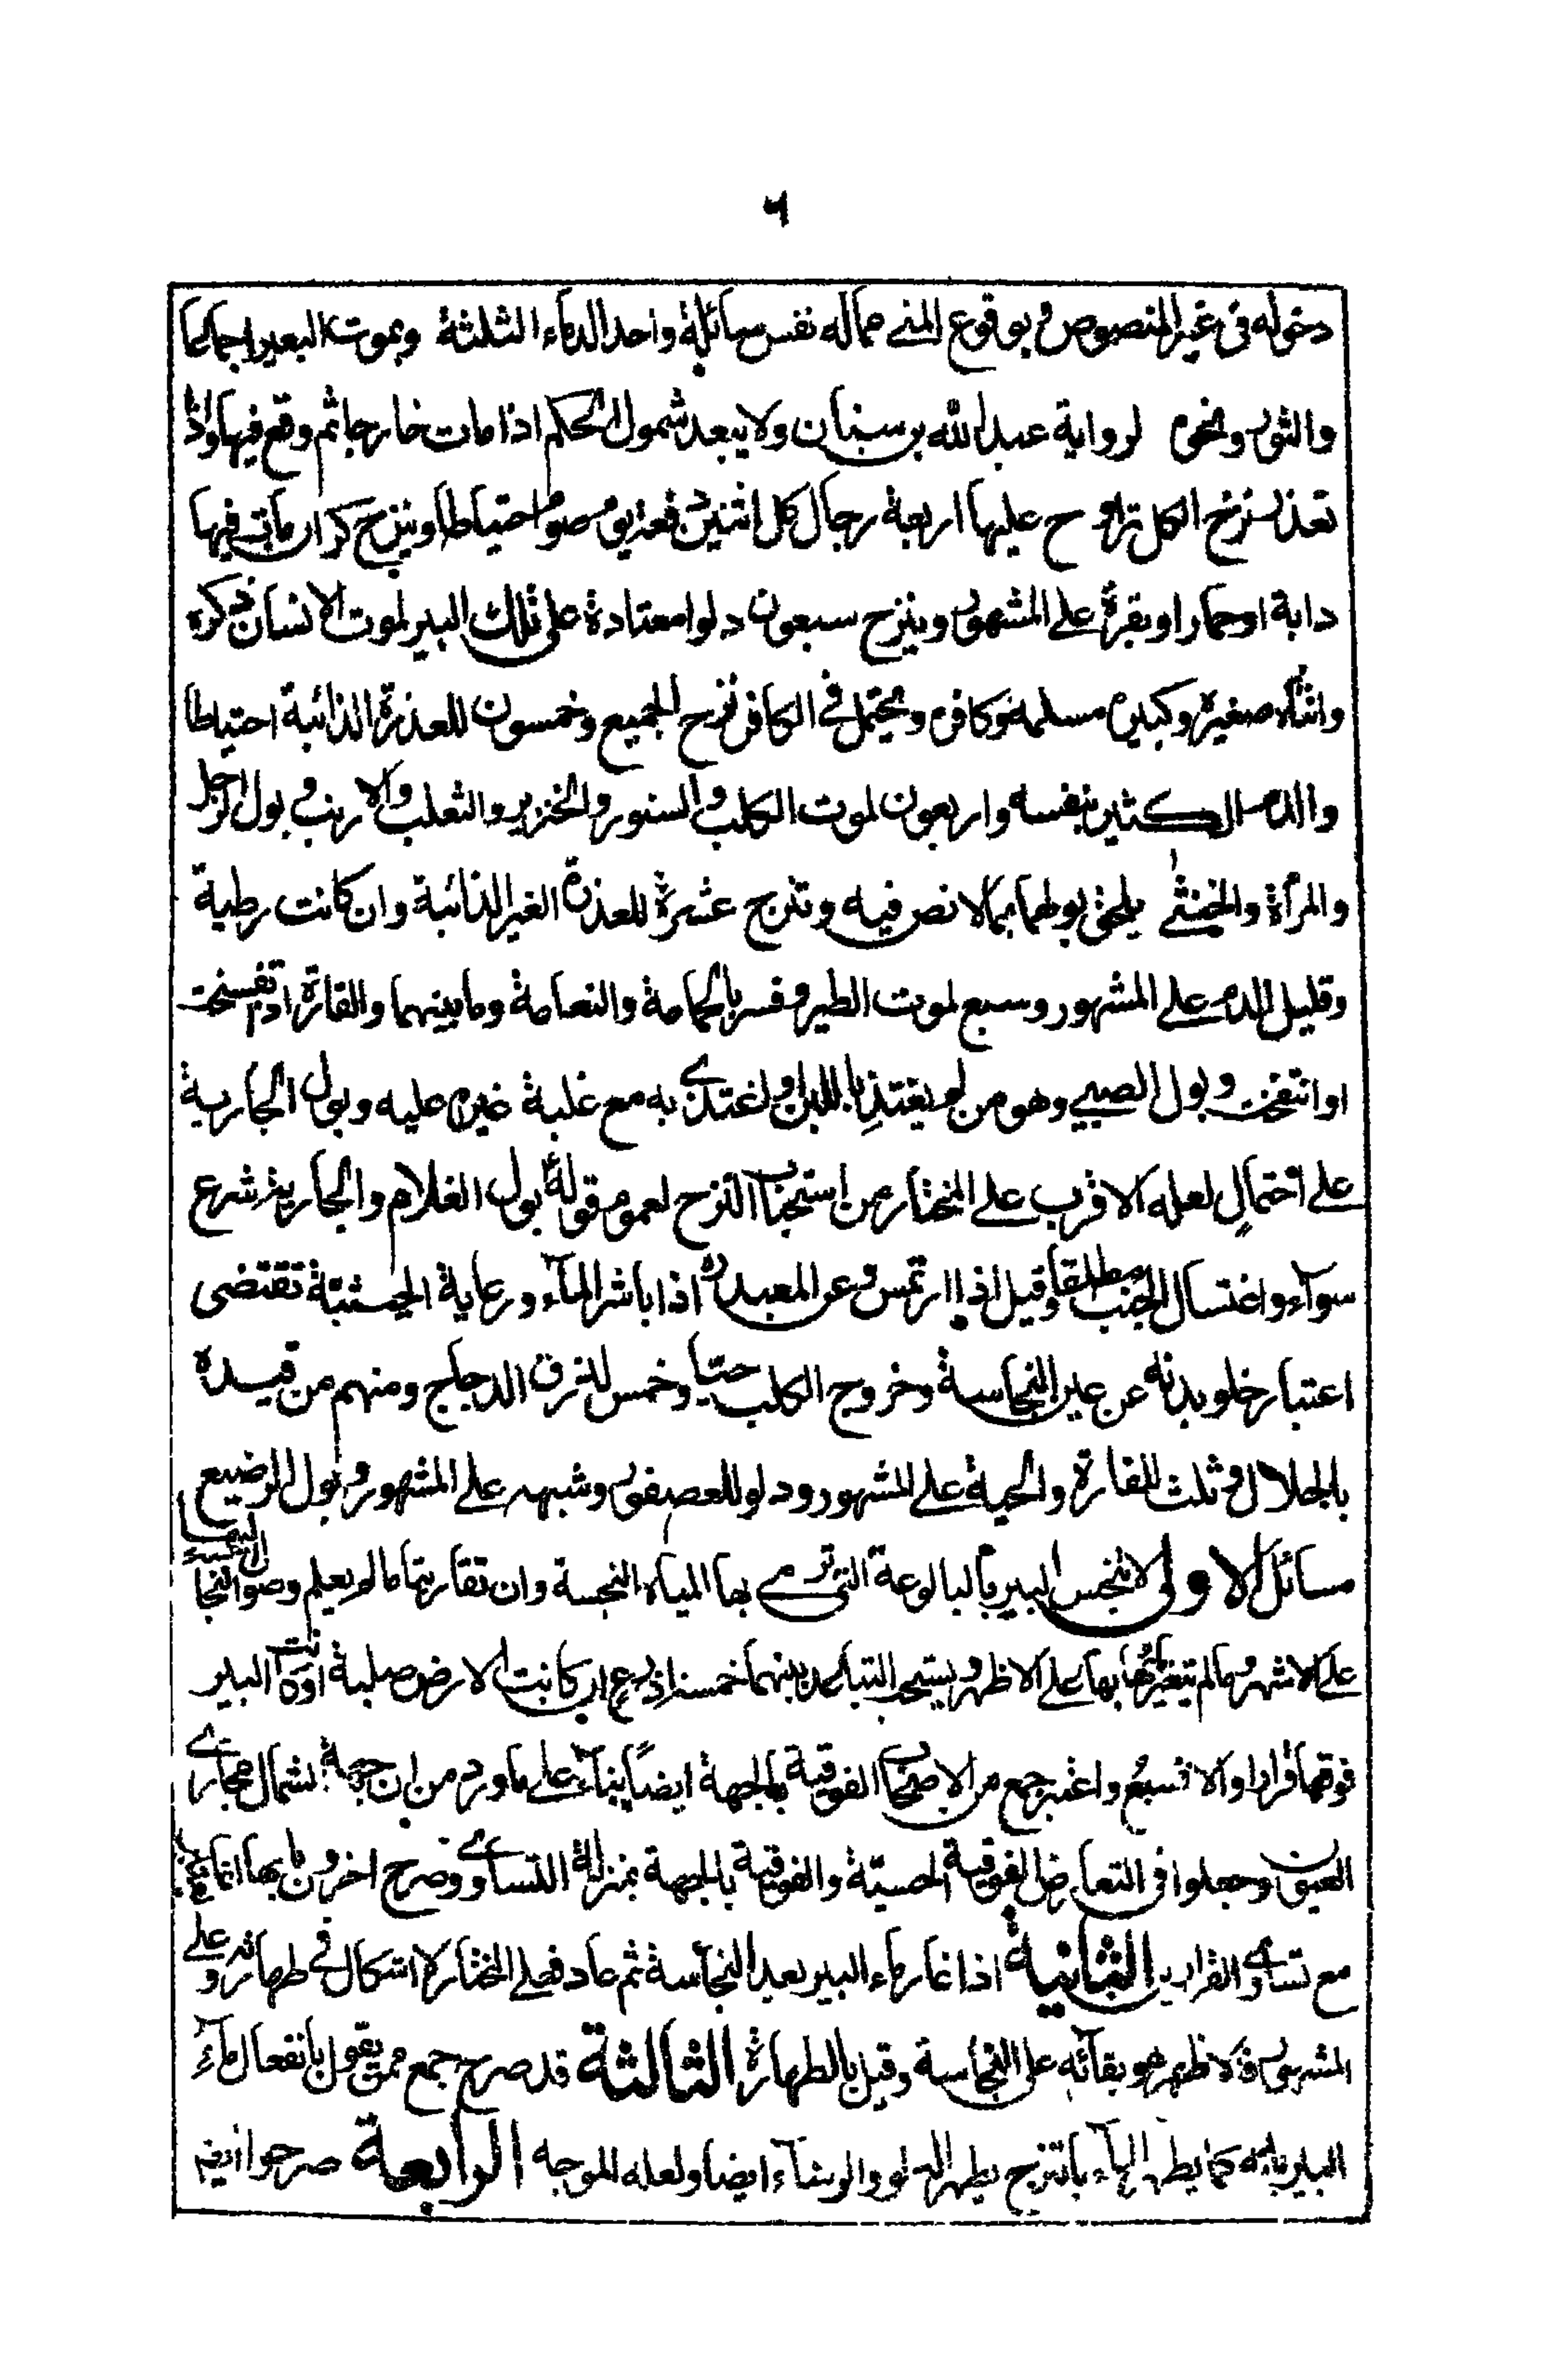 ٦
دخوله فى غير المنصوص و بوقوع المنى مماله نفس سائلة واحد الدماء الثلثة وبموت البعير اجماعا
والثور ونحوه لرواية عبد الله بن سنان ولا يبعد شمول الحكم اذا مات خارجا ثم وقع فيها واذا
تعذر نزح الكل تراوح عليها اربعة رجال كل اثنين دفعة يوم صوم احتياطا وينزح كر ان مات فيها
دابة او حمار او بقرة على المشهور وينزح سبعون دلوا معتادة على تلك البير لموت الانسان ذكره
وانثاه صغيره وكبيره مسلمه وكافره ويحتمل فى الكافر نزح الجميع وخمسون للعذرة الذائبة احتياطا
والدم الكثير بنفسه واربعون لموت الكلب والسنور والخنزير والثعلب والارنب و بول الرجل
والمراة والخنثى يلحق بولهما بما لا نص فيه وتنزح عشرة للعذرة الغير الذائبة وان كانت رطبة
وقليل الدم على المشهور وسبع لموت الطير وفسر بالحمامة والنعامة وما بينهما والفارة اذا تفسخت
او انتفخت وبول الصبى وهو من لم يغتذ باللبن او اغتذى به مع غلبة غيره عليه وبول الجارية
على احتمال لعله الاقرب على المختار من استحباب النزح لعموم قوله بول الغلام والجارية شرع
سوآء واغتسال الجنب مطلقا وقيل اذا ارتمس وعن المعبده اذا باشر المآء ورعاية الحيثية تقتضى
اعتبار خلو بدنه عن عين النجاسة وخروج الكلب حيا وخمس لذرق الدجاج ومنهم من قيده
بالجلال وثلث للفارة والحية على المشهور ودلو للعصفور وشبهه على المشهور وبول الرضيع
مسائل الاولى لا ينجس البير بالبالوعة التى ترمى بها المياه النجسة وان تقاربتا ما لم يعلم وصول النجاسة اليها
على الاشهر وما لم يتغير مائها بها على الاظهر ويستحب التباعد بينهما خمسة اذرع ان كانت الارض صلبة او كانت البير
فوقها قرارا والا فسبع واعتبر جمع من الاصحاب الفوقية بالجهة ايضا بناء على ما ورد من ان جهة الشمال مجارى
العيون وجعلوا فى التعارض الفوقية الحسية والفوقية بالجهة بمنزلة التساوى وصرح اخرون بانها انما تعتبر
مع تساوى القرارين الثانية اذا غار ماء البير بعد النجاسة ثم عاد فعلى المختار لا اشكال فى طهارته وعلى
المشهور فالاظهر هو بقائه على النجاسة وقيل بالطهارة الثالثة قد صرح جمع ممن يقول بانفعال مآء
البير بانه كما يطهر المآء بالنزح يطهر الدلو والرشآء ايضا ولعله الموجه الرابعة صرحوا انه